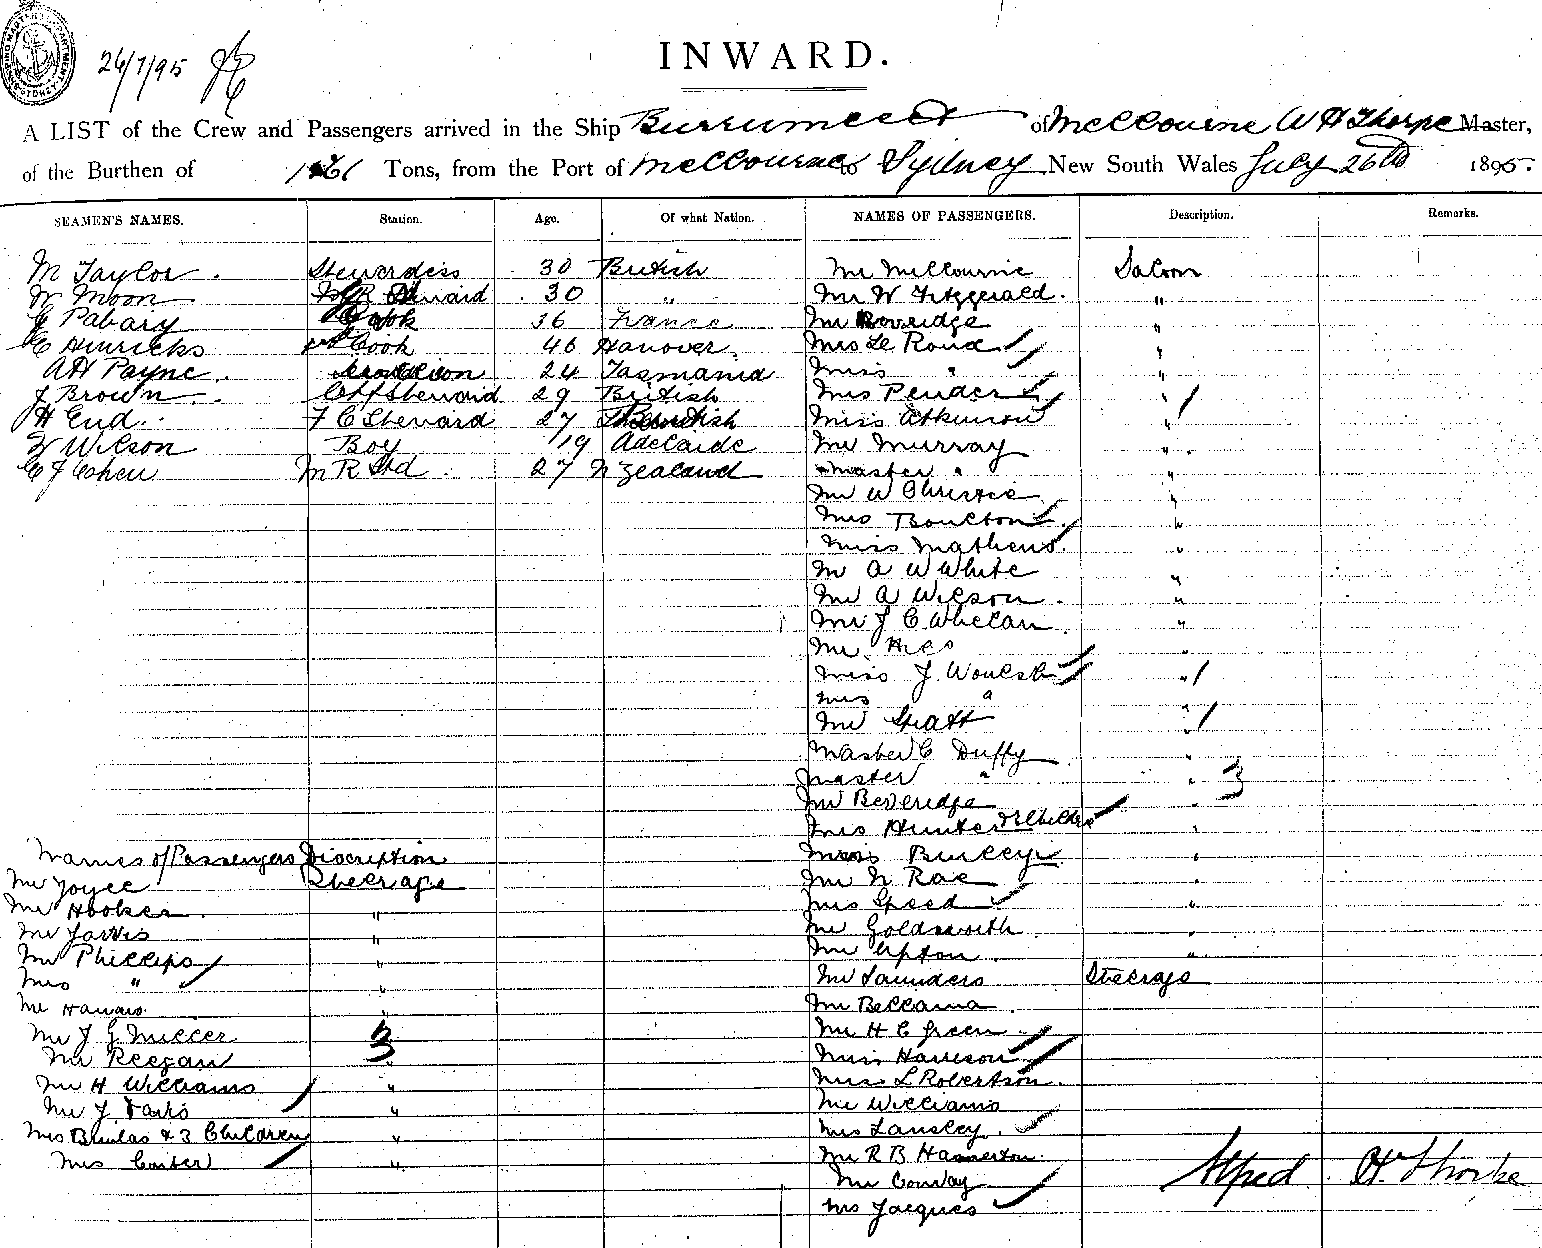 26/7/95
INWARD.
A LIST of the Crew and Passengers arrived in the Ship Burrumbeet of Melbourne W H Thorpe Master,
of the Burthen of Tons, from the Port of Melbourne to Sydney New South Wales July 26th 1895.
SEAMEN'S NAMES. Station. Age. Of what Nation. NAMES OF PASSENGERS. Description. Remarks.
M Taylor Stewardess 30 British Mr Melbourne Saloon
W Moon Steward 30 " Mr W Fitzgerald "
Pabary Cook 36 France Mr Boveridge "
C Hinricks Cook 46 Hanover Mrs Le Roux "
AH Payne 24 Tasmania Miss " "
J Brown Steward 29 British Mrs Pender "
H End F C Steward 27 British Miss Atkinson "
W Wilson Boy 19 Adelaide Mr Murray "
C J Cohen M R Std 27 N Zealand Master " "
Mr W Christie "
Mrs Boulton "
Miss Mathews "
Mr A W White "
Mr A Wilson "
Mr J C Whelan "
Mr "
Miss J "
Mrs " "
Mr Spratt "
Master C Duffy "
Master " " 3
Mr Beveridge "
Mrs Hunter "
Names of Passengers Discription "
Mr Joyce Steerage Mr N Rae "
Mr Hooker " Mrs Speed "
Mr Jarvis " Mr Goldsworth "
Mr Phillips " Mr Upton "
Mrs " " Mr Saunders Steerage
Mr Mr Bellama
Mr J G Miller Mr H C Green
Mr Reegan 3 Miss Harrison
Mr H Williams " Miss L Robertson
Mr J " Mr Williams
Mrs & 3 Children " Mrs Lansley
Mrs Carter " Mr R B Hamerton
Mr Conway
Mrs Jacques
Alfred H Thorpe